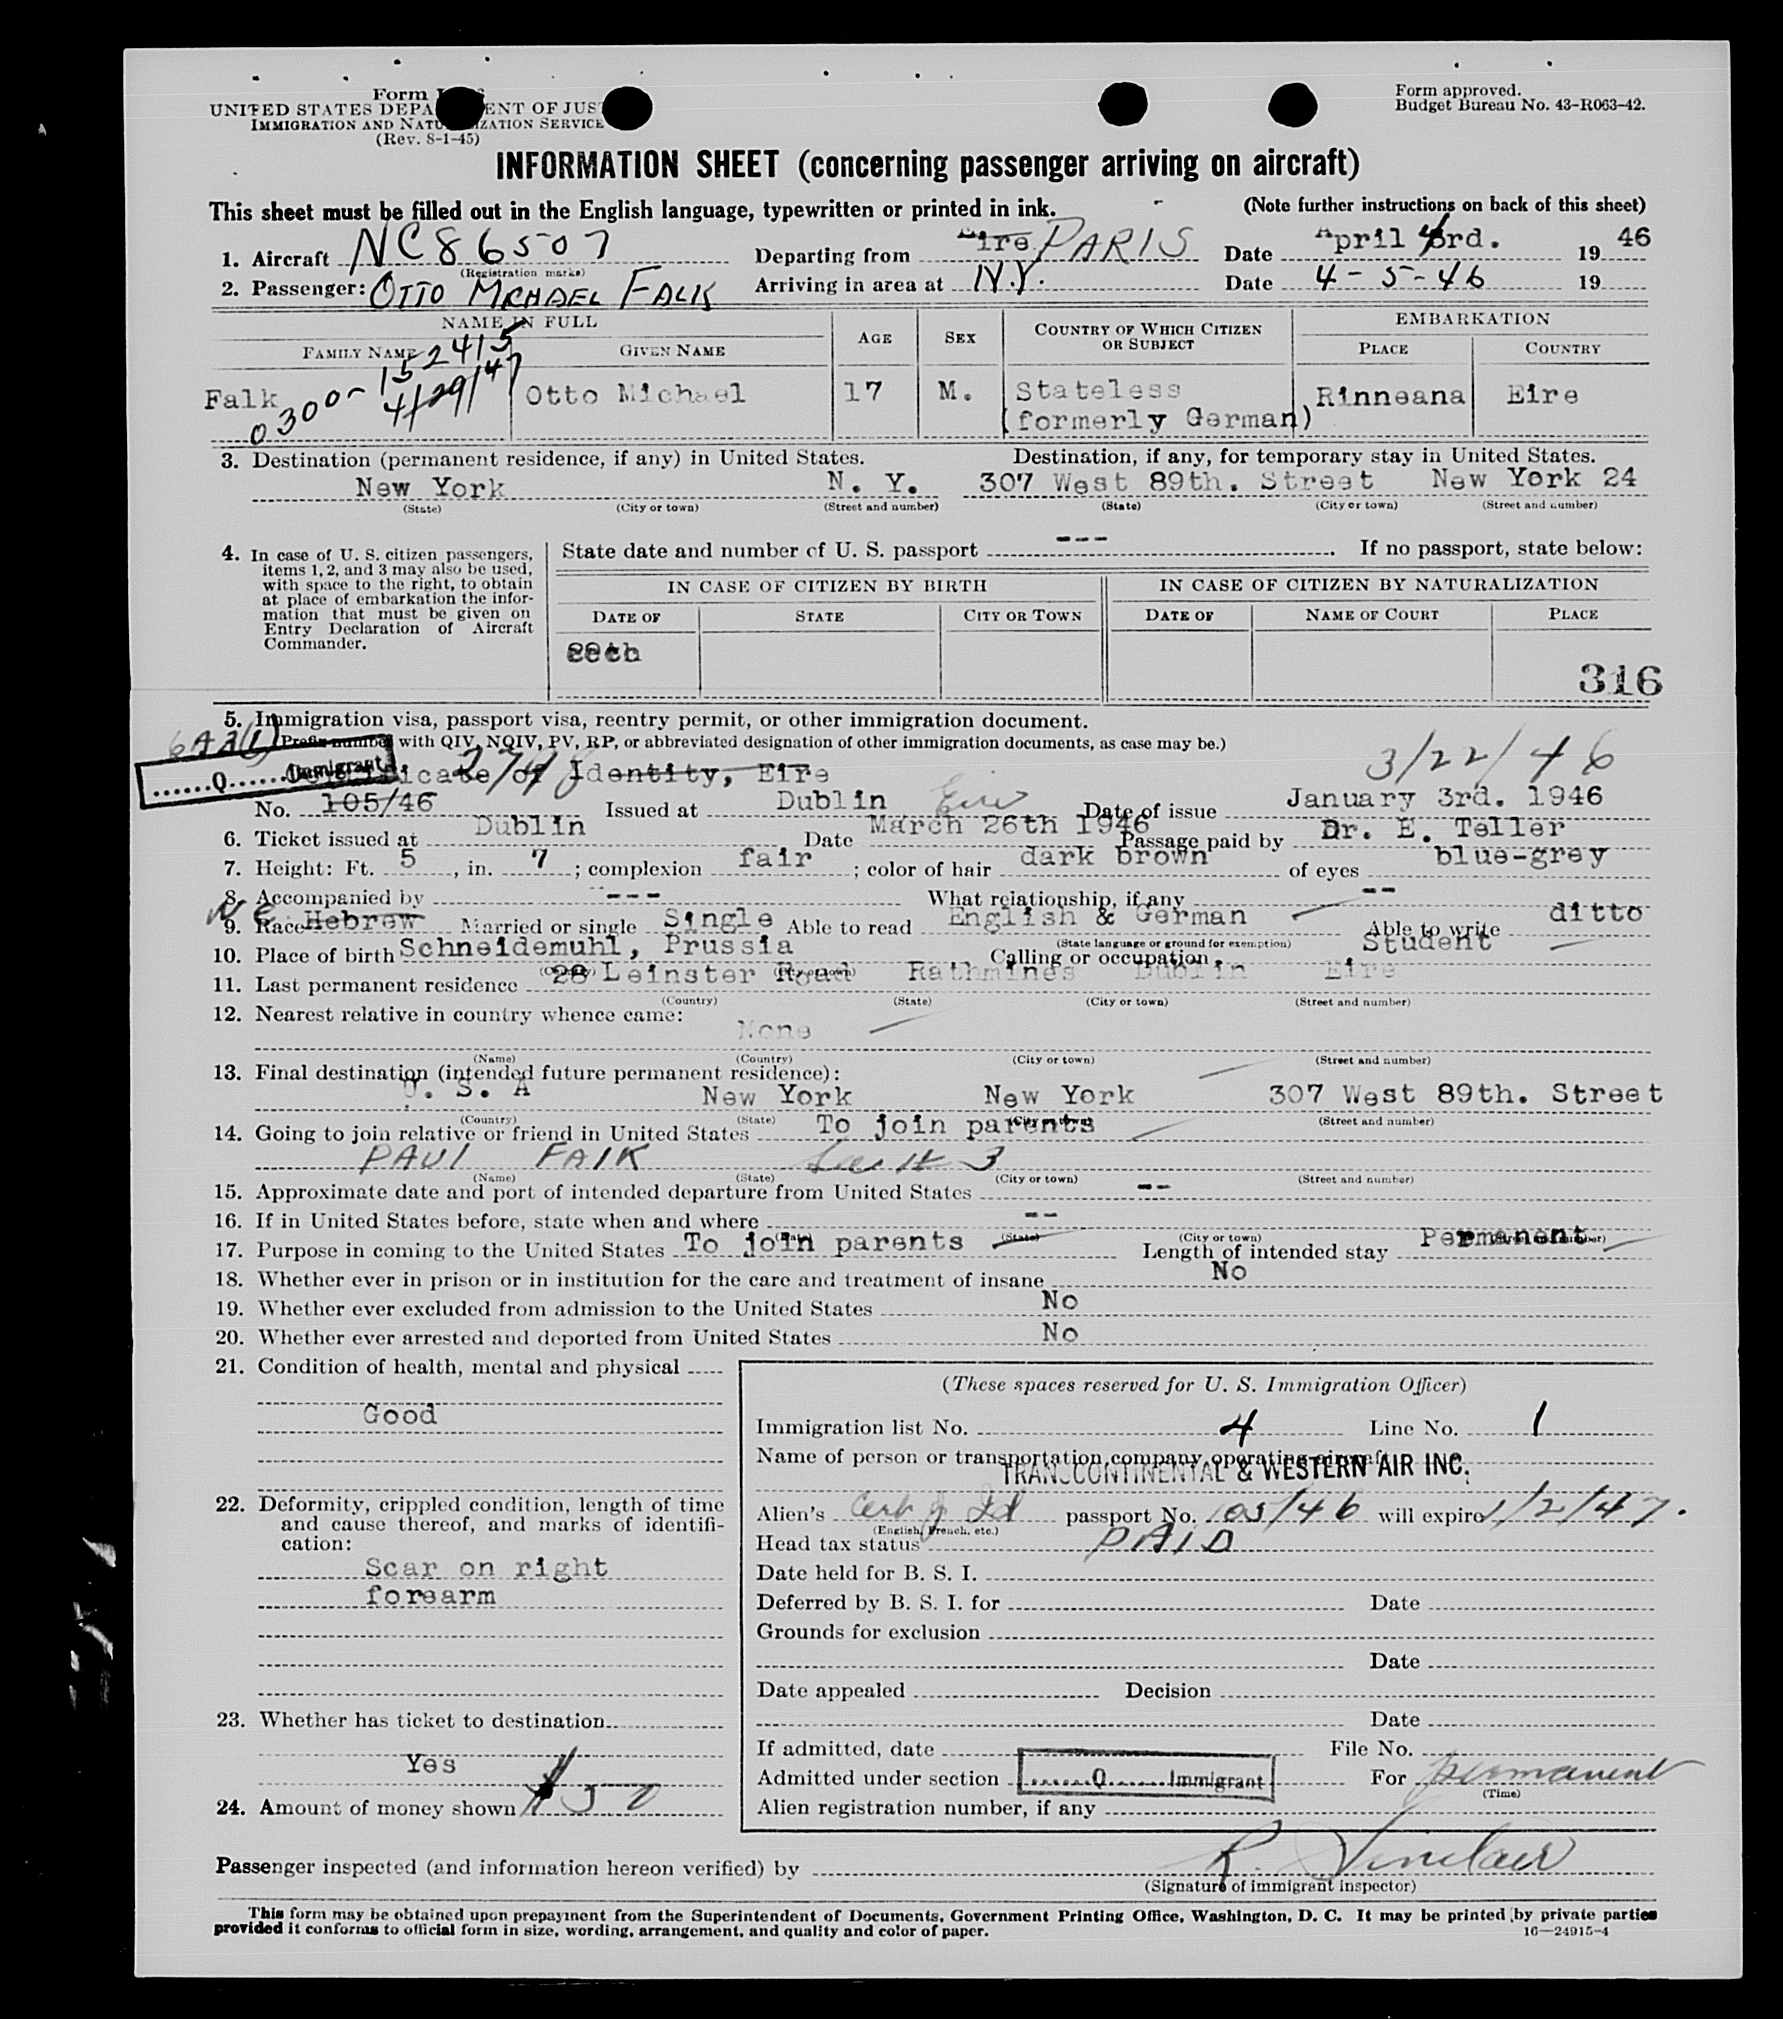 Form I
UNITED STATES DEPA ENT OF JUS
IMMIGRATION AND NATU IZATION SERVICE
(Rev. 8-1-45)
Form approved.
Budget Bureau No. 43-R063-42.
INFORMATION SHEET (concerning passenger arriving on aircraft)
This sheet must be filled out in the English language, typewritten or printed in ink. (Note further instructions on back of this sheet)
1. Aircraft NC86507 Departing from Eire PARIS Date April 4 3rd. 19 46
(Registration marks)
2. Passenger: OTTO MICHAEL FALK Arriving in area at N.Y. Date 4-5-46 19
NAME IN FULL AGE SEX COUNTRY OF WHICH CITIZEN OR SUBJECT EMBARKATION
FAMILY NAME GIVEN NAME PLACE COUNTRY
0300-152415
4/29/47
Falk Otto Michael 17 M. Stateless Rinneana Eire
(formerly German)
3. Destination (permanent residence, if any) in United States. Destination, if any, for temporary stay in United States.
New York N. Y. 307 West 89th. Street New York 24
(State) (City or town) (Street and number) (State) (City or town) (Street and number)
4. In case of U. S. citizen passengers, items 1, 2, and 3 may also be used, with space to the right, to obtain at place of embarkation the information that must be given on Entry Declaration of Aircraft Commander.
State date and number of U. S. passport --- If no passport, state below:
IN CASE OF CITIZEN BY BIRTH IN CASE OF CITIZEN BY NATURALIZATION
DATE OF STATE CITY OR TOWN DATE OF NAME OF COURT PLACE
316
5. Immigration visa, passport visa, reentry permit, or other immigration document.
(Prefix number with QIV, NQIV, PV, RP, or abbreviated designation of other immigration documents, as case may be.)
......Q......Immigrant
Certificate of Identity, Eire 274 3/22/46
No. 105/46 Issued at Dublin Eire Date of issue January 3rd. 1946
6. Ticket issued at Dublin Date March 26th 1946 Passage paid by Dr. E. Teller
7. Height: Ft. 5, in. 7; complexion fair; color of hair dark brown of eyes blue-grey
8. Accompanied by --- What relationship, if any --
9. Race Hebrew Married or single Single Able to read English & German Able to write ditto
(State language or ground for exemption)
10. Place of birth Schneidemuhl, Prussia Calling or occupation Student
(Country) (City or town)
11. Last permanent residence 28 Leinster Road Rathmines Dublin Eire
(Country) (State) (City or town) (Street and number)
12. Nearest relative in country whence came:
None
(Name) (Country) (City or town) (Street and number)
13. Final destination (intended future permanent residence):
U. S. A New York New York 307 West 89th. Street
(Country) (State) (City or town) (Street and number)
14. Going to join relative or friend in United States To join parents
PAUL FALK See # 3
(Name) (State) (City or town) (Street and number)
15. Approximate date and port of intended departure from United States --
16. If in United States before, state when and where --
(Date) (State) (City or town) (Street and number)
17. Purpose in coming to the United States To join parents Length of intended stay Permanent
18. Whether ever in prison or in institution for the care and treatment of insane No
19. Whether ever excluded from admission to the United States No
20. Whether ever arrested and deported from United States No
21. Condition of health, mental and physical
Good
22. Deformity, crippled condition, length of time and cause thereof, and marks of identification:
Scar on right
forearm
23. Whether has ticket to destination
Yes
24. Amount of money shown $50
(These spaces reserved for U. S. Immigration Officer)
Immigration list No. 4 Line No. 1
Name of person or transportation company operating aircraft
TRANSCONTINENTAL & WESTERN AIR INC.
Alien's Cert of Id passport No. 105/46 will expire 1/2/47.
(English, French, etc.)
Head tax status PAID
Date held for B. S. I.
Deferred by B. S. I. for Date
Grounds for exclusion
Date
Date appealed Decision
Date
If admitted, date File No.
Admitted under section ......Q......Immigrant For permanent
(Time)
Alien registration number, if any
Passenger inspected (and information hereon verified) by R. Sinclair
(Signature of immigrant inspector)
This form may be obtained upon prepayment from the Superintendent of Documents, Government Printing Office, Washington, D. C. It may be printed by private parties
provided it conforms to official form in size, wording, arrangement, and quality and color of paper. 16—24915-4